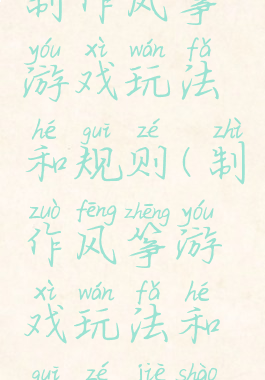 制作风筝
yóu xì wán fǎ
游戏玩法
hé guī zé zhì
和规则(制
zuò fēng zhēng yóu
作风筝游
xì wán fǎ hé
戏玩法和
guī zé jiè shào